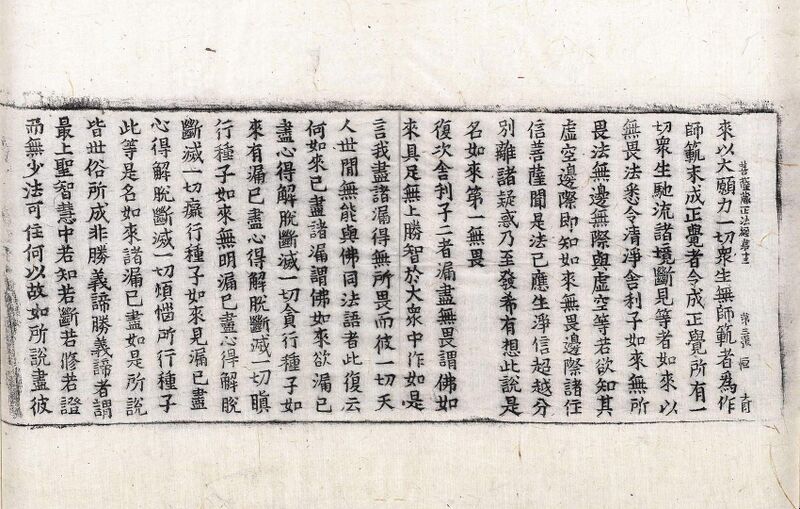 菩薩藏正法經卷十三 第三張 恒
來以大願力一切衆生無師範者爲作
師範未成正覺者令成正覺所有一
切衆生馳流諸境斷見等者如來以
無畏法悉令清淨舍利子如來無所
畏法無邊無際與虛空等若欲知其
虛空邊際即知如來無畏邊際諸住
信菩薩聞是法已應生淨信超越分
別離諸疑惑乃至發希有想此說是
名如來第一無畏
復次舍利子二者漏盡無畏謂佛如
來具足無上勝智於大衆中作如是
言我盡諸漏得無所畏而彼一切天
人世間無能與佛同法語者此復云
何如來已盡諸漏謂佛如來欲漏已
盡心得解脫斷滅一切貪行種子如
來有漏已盡心得解脫斷滅一切瞋
行種子如來無明漏已盡心得解脫
斷滅一切癡行種子如來見漏已盡
心得解脫斷滅一切煩惱所行種子
此等是名如來諸漏已盡如是所說
皆世俗所成非勝義諦勝義諦者謂
最上聖智慧中若知若斷若修若證
而無少法可住何以故如所說盡彼